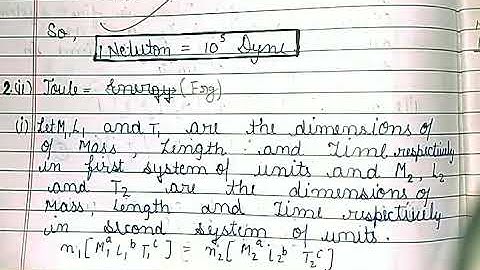 So,
1 Neluton = 10⁵ Dyne
2.(ii) Joule = Energy (Erg)
(i) Let M₁, L₁ and T₁ are the dimensions of
of Mass, Length and Time respectively
in first system of units and M₂, L₂
and T₂ are the dimensions of
Mass, Length and Time respectively
in second system of units.
n₁[M₁ᵃ L₁ᵇ T₁ᶜ] = n₂[M₂ᵃ L₂ᵇ T₂ᶜ]